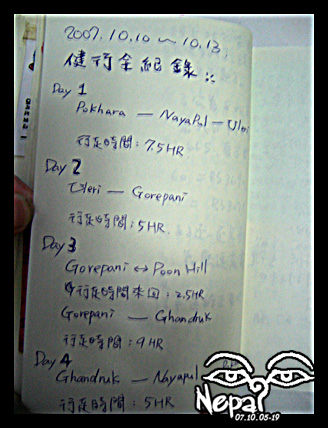 2007.10.10 ~ 10.13
健行全紀錄:
Day 1
Pokhara — NayaPul — Uleri
行走時間:7.5HR
Day 2
Uleri — Gorepani
行走時間:5HR
Day 3
Gorepani ↔ Poon Hill
行走時間來回:2.5HR
Gorepani — Ghandruk
行走時間:9HR
Day 4
Ghandruk — Nayapul
行走時間:5HR
Nepal
07.10.05-19